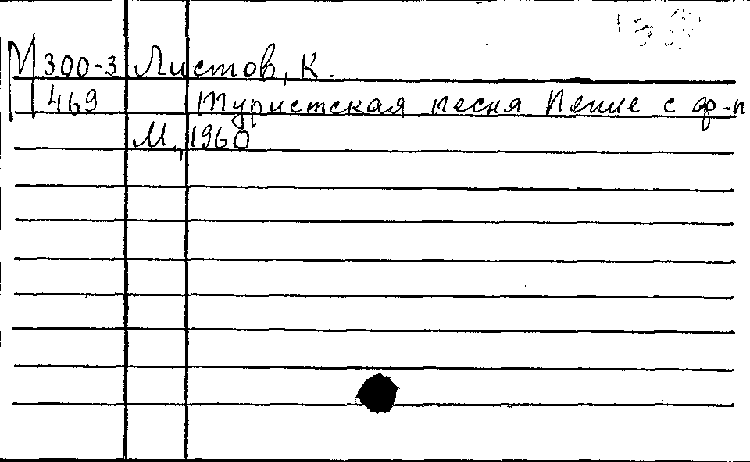 М 300-3 Листов, К.
П 469 Туристская песня Пение с ф-п
М., 1960